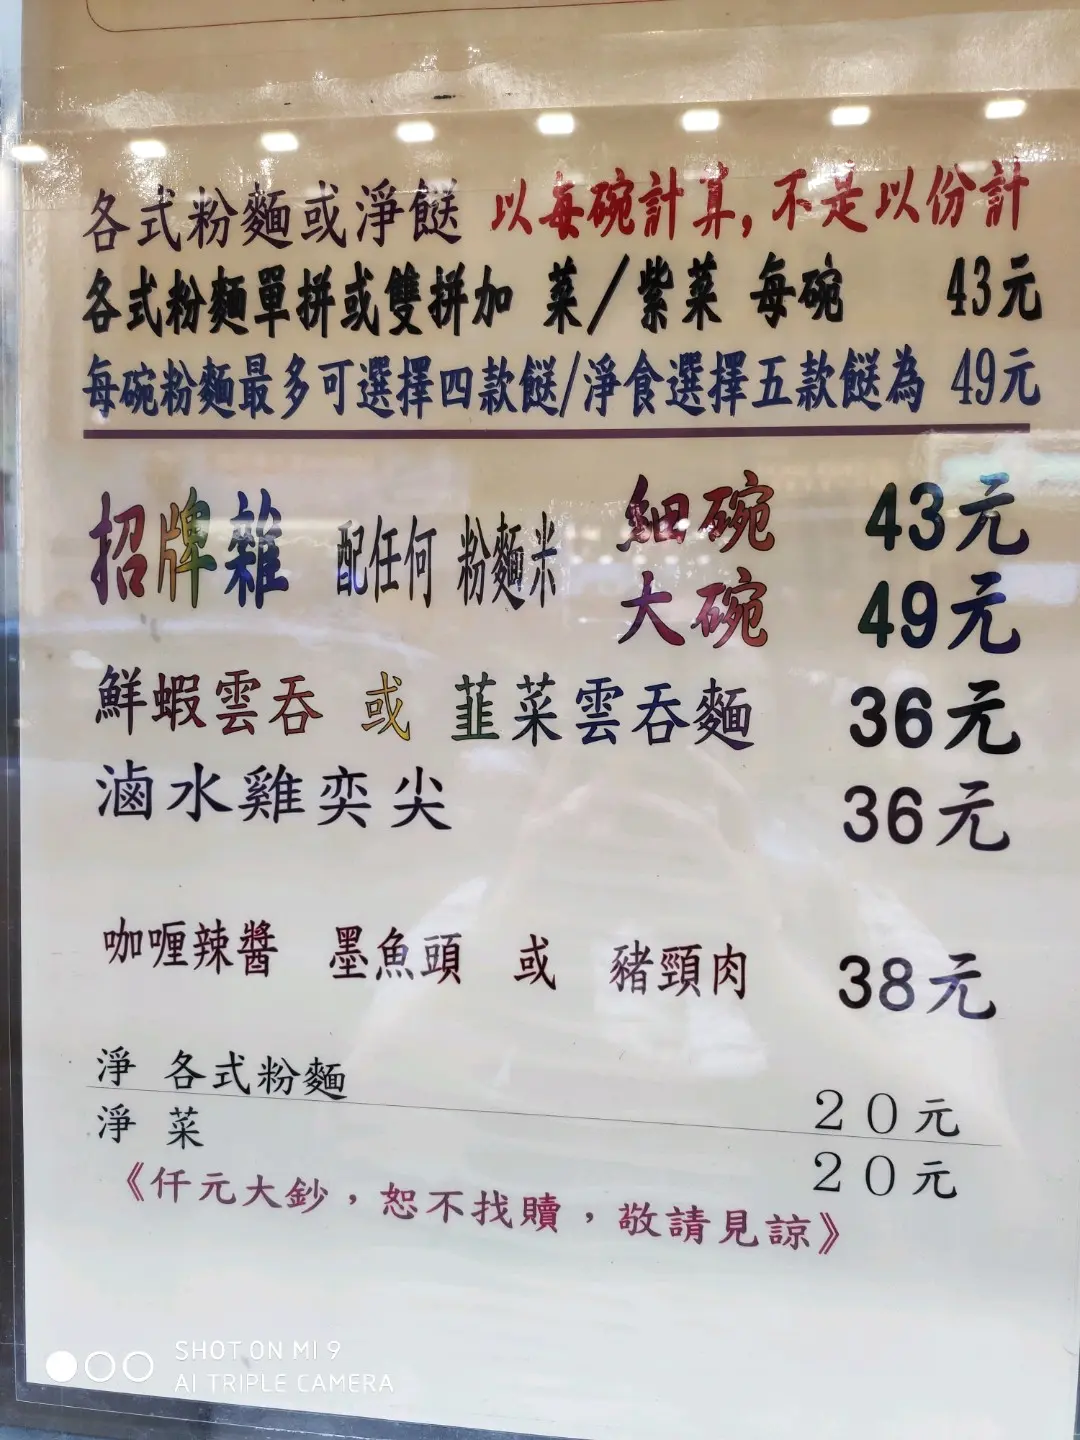 各式粉麵或淨餸 以每碗計算,不是以份計
各式粉麵單拼或雙拼加 菜/紫菜 每碗 43元
每碗粉麵最多可選擇四款餸/淨食選擇五款餸為 49元
招牌雜 配任何 粉麵米 細碗 43元
大碗 49元
鮮蝦雲吞 或 韮菜雲吞麵 36元
滷水雞奕尖 36元
咖喱辣醬 墨魚頭 或 豬頸肉 38元
淨 各式粉麵 20元
淨 菜 20元
《仟元大鈔,恕不找贖,敬請見諒》
SHOT ON MI 9
AI TRIPLE CAMERA